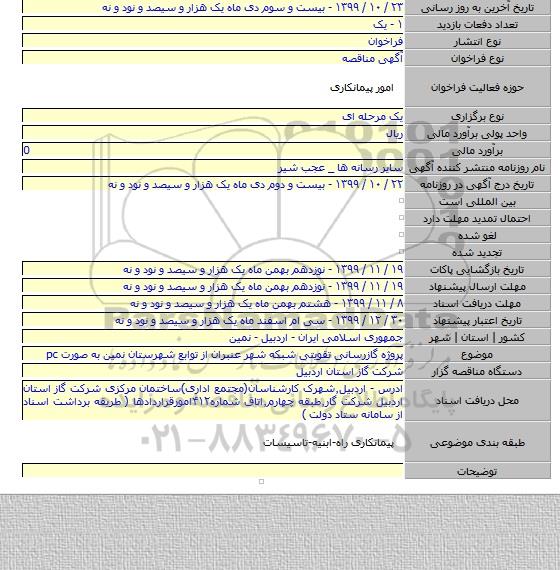 تاریخ آخرین به روز رسانی ۲۳ / ۱۰ / ۱۳۹۹ - بیست و سوم دی ماه یک هزار و سیصد و نود و نه
تعداد دفعات بازدید ۱ - یک
نوع انتشار فراخوان
نوع فراخوان آگهی مناقصه
حوزه فعالیت فراخوان امور پیمانکاری
نوع برگزاری یک مرحله ای
واحد پولی برآورد مالی ریال
برآورد مالی 0
نام روزنامه منتشر کننده آگهی سایر رسانه ها _ عجب شیر
تاریخ درج آگهی در روزنامه ۲۲ / ۱۰ / ۱۳۹۹ - بیست و دوم دی ماه یک هزار و سیصد و نود و نه
بین المللی است
احتمال تمدید مهلت دارد
لغو شده
تجدید شده
تاریخ بازگشایی پاکات ۱۹ / ۱۱ / ۱۳۹۹ - نوزدهم بهمن ماه یک هزار و سیصد و نود و نه
مهلت ارسال پیشنهاد ۱۹ / ۱۱ / ۱۳۹۹ - نوزدهم بهمن ماه یک هزار و سیصد و نود و نه
مهلت دریافت اسناد ۸ / ۱۱ / ۱۳۹۹ - هشتم بهمن ماه یک هزار و سیصد و نود و نه
تاریخ اعتبار پیشنهاد ۳۰ / ۱۲ / ۱۳۹۹ - سی ام اسفند ماه یک هزار و سیصد و نود و نه
کشور | استان | شهر جمهوری اسلامی ایران - اردبیل - نمین
موضوع پروژه گازرسانی تقویتی شبکه شهر عنبران از توابع شهرستان نمین به صورت pc
دستگاه مناقصه گزار شرکت گاز استان اردبیل
محل دریافت اسناد آدرس - اردبیل,شهرک کارشناسان(مجتمع اداری)ساختمان مرکزی شرکت گاز استان
اردبیل شرکت گاز,طبقه چهارم,اتاق شماره۴۱۲امورقراردادها ( طریقه برداشت اسناد
از سامانه ستاد دولت )
طبقه بندی موضوعی پیمانکاری راه-ابنیه-تاسیسات
توضیحات
۰۲۱-۸۸۳۴۹۶۷۰-۵